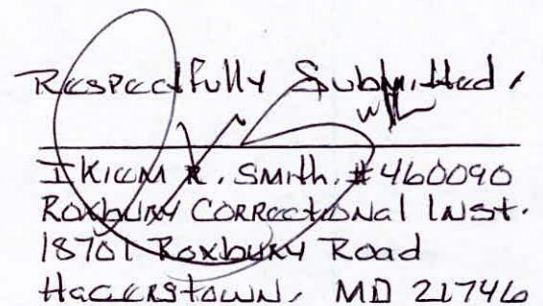 Respectfully Submitted,
Ikiem R. Smith. #460090
Roxbury Correctional Inst.
18701 Roxbury Road
Hagerstown, MD 21746